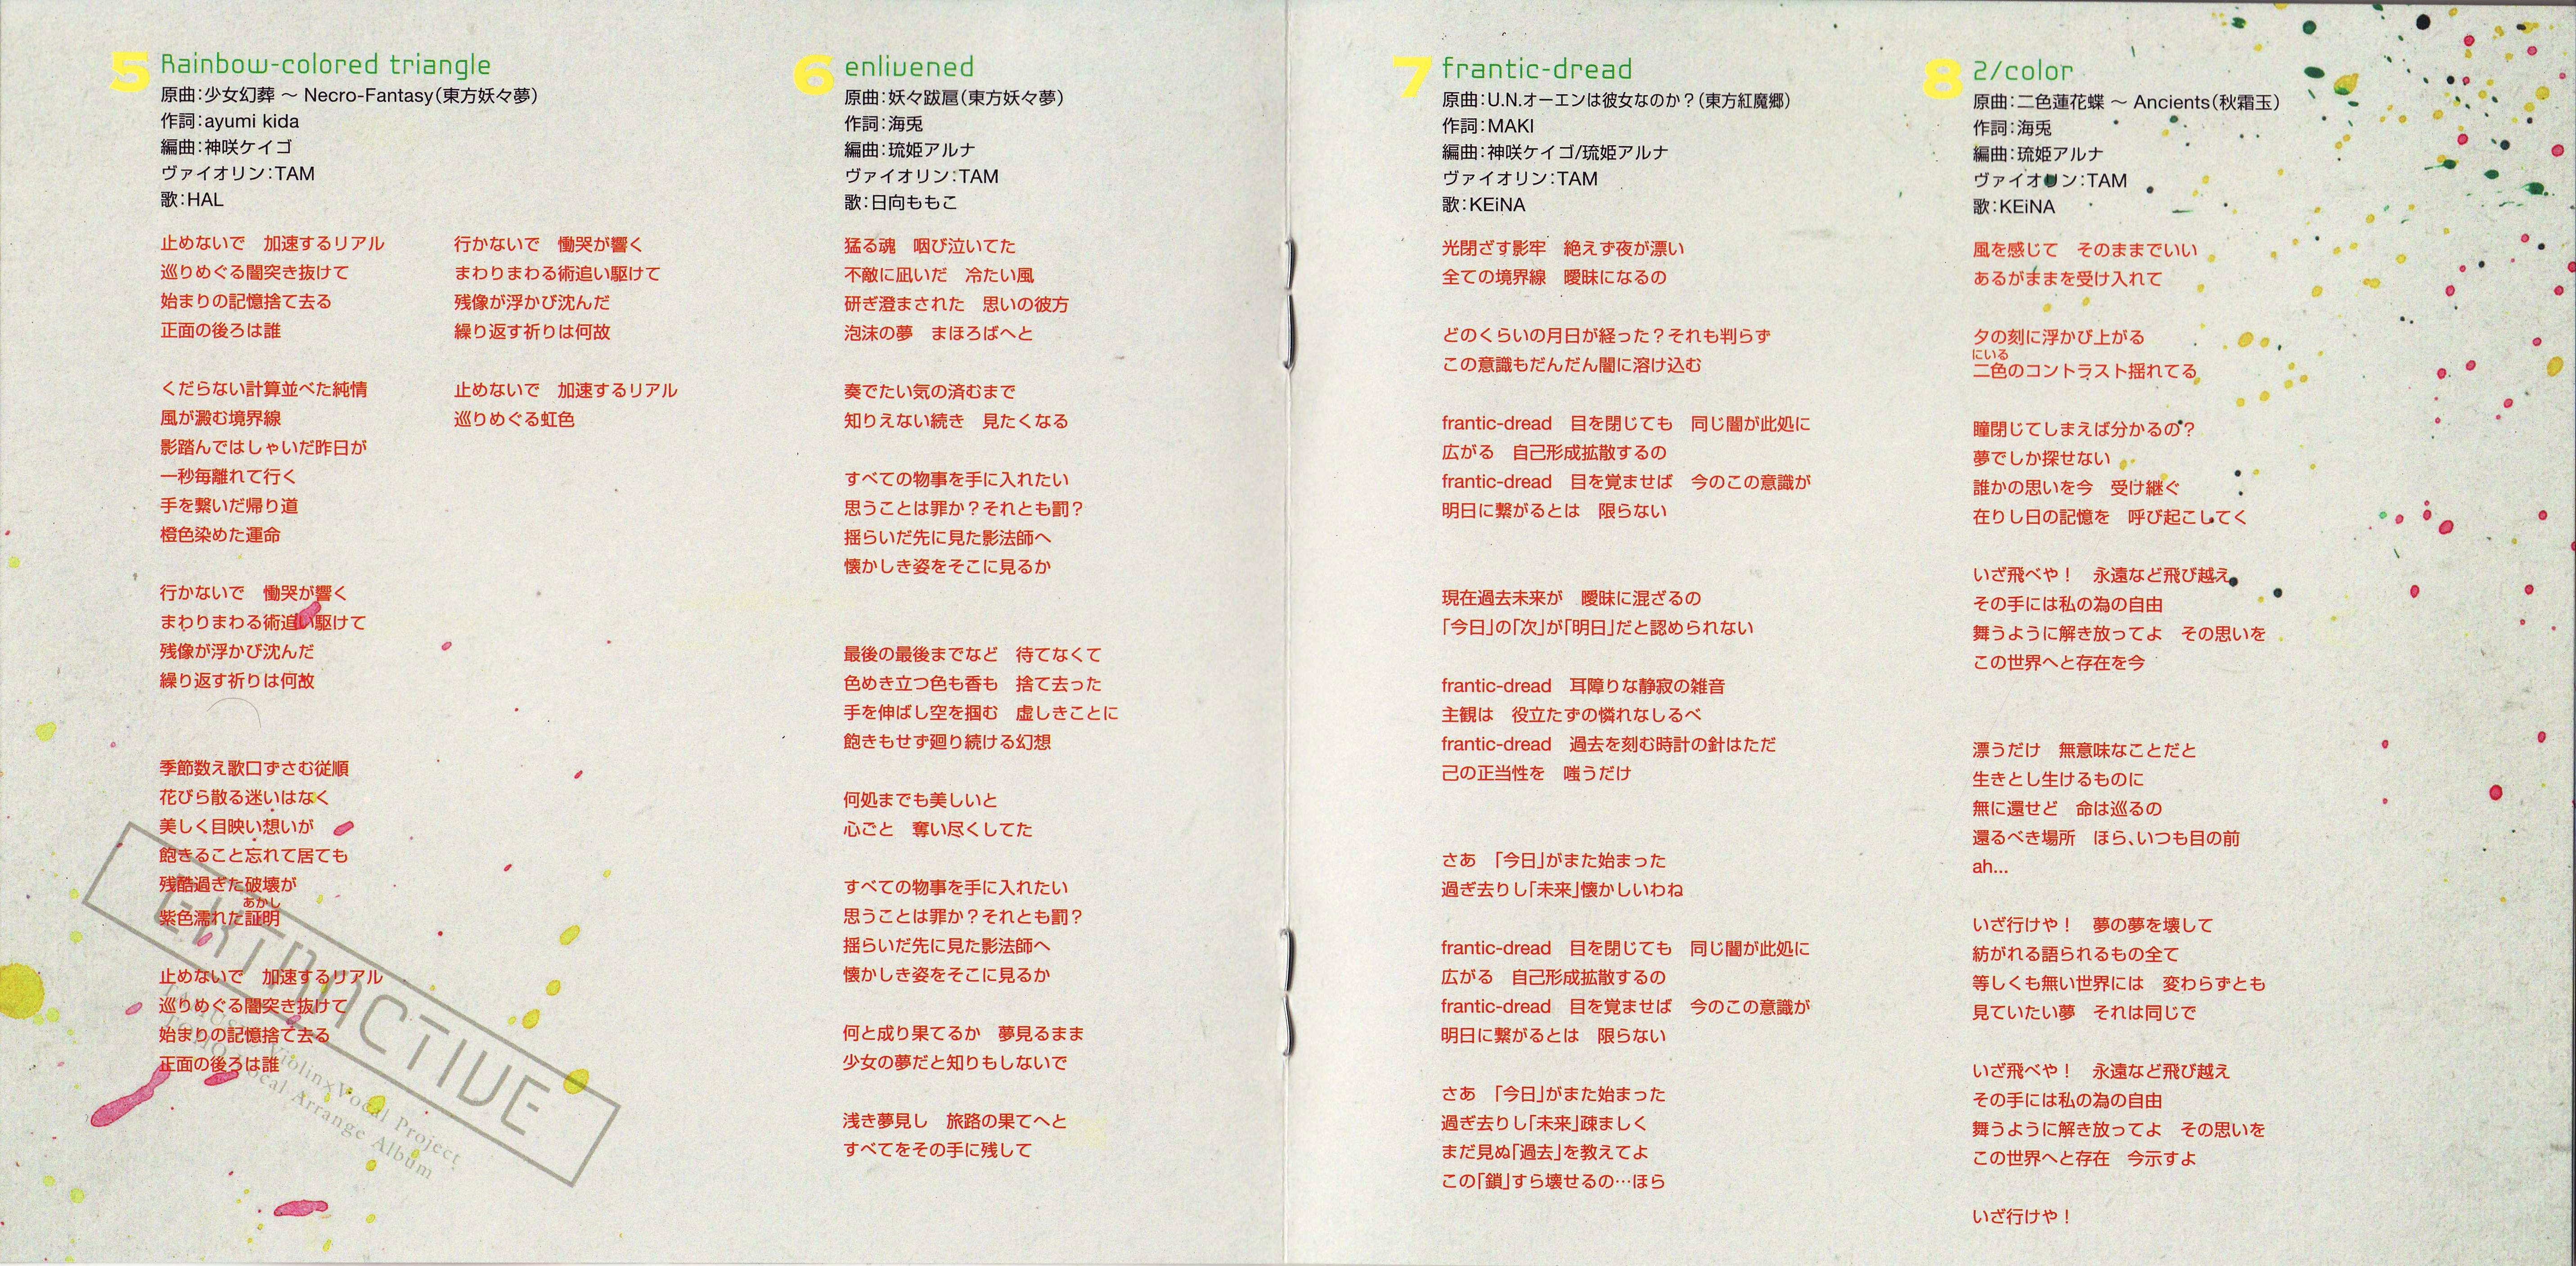 5 Rainbow-colored triangle
原曲：少女幻葬 ～ Necro-Fantasy（東方妖々夢）
作詞：ayumi kida
編曲：神咲ケイゴ
ヴァイオリン：TAM
歌：HAL
止めないで　加速するリアル
巡りめぐる闇突き抜けて
始まりの記憶捨て去る
正面の後ろは誰
くだらない計算並べた純情
風が澱む境界線
影踏んではしゃいだ昨日が
一秒毎離れて行く
手を繋いだ帰り道
橙色染めた運命
行かないで　慟哭が響く
まわりまわる術追い駆けて
残像が浮かび沈んだ
繰り返す祈りは何故
季節数え歌口ずさむ従順
花びら散る迷いはなく
美しく目映い想いが
飽きること忘れて居ても
残酷過ぎた破壊が
あかし
紫色濡れた証明
止めないで　加速するリアル
巡りめぐる闇突き抜けて
始まりの記憶捨て去る
正面の後ろは誰
行かないで　慟哭が響く
まわりまわる術追い駆けて
残像が浮かび沈んだ
繰り返す祈りは何故
止めないで　加速するリアル
巡りめぐる虹色
EXTRACTIVE
Violin×Vocal Project
Vocal Arrange Album
6 enlivened
原曲：妖々跋扈（東方妖々夢）
作詞：海兎
編曲：琉姫アルナ
ヴァイオリン：TAM
歌：日向ももこ
猛る魂　咽び泣いてた
不敵に凪いだ　冷たい風
研ぎ澄まされた　思いの彼方
泡沫の夢　まほろばへと
奏でたい気の済むまで
知りえない続き　見たくなる
すべての物事を手に入れたい
思うことは罪か？それとも罰？
揺らいだ先に見た影法師へ
懐かしき姿をそこに見るか
最後の最後までなど　待てなくて
色めき立つ色も香も　捨て去った
手を伸ばし空を掴む　虚しきことに
飽きもせず廻り続ける幻想
何処までも美しいと
心ごと　奪い尽くしてた
すべての物事を手に入れたい
思うことは罪か？それとも罰？
揺らいだ先に見た影法師へ
懐かしき姿をそこに見るか
何と成り果てるか　夢見るまま
少女の夢だと知りもしないで
浅き夢見し　旅路の果てへと
すべてをその手に残して
7 frantic-dread
原曲：U.N.オーエンは彼女なのか？（東方紅魔郷）
作詞：MAKI
編曲：神咲ケイゴ/琉姫アルナ
ヴァイオリン：TAM
歌：KEiNA
光閉ざす影牢　絶えず夜が漂い
全ての境界線　曖昧になるの
どのくらいの月日が経った？それも判らず
この意識もだんだん闇に溶け込む
frantic-dread　目を閉じても　同じ闇が此処に
広がる　自己形成拡散するの
frantic-dread　目を覚ませば　今のこの意識が
明日に繋がるとは　限らない
現在過去未来が　曖昧に混ざるの
「今日」の「次」が「明日」だと認められない
frantic-dread　耳障りな静寂の雑音
主観は　役立たずの憐れなしるべ
frantic-dread　過去を刻む時計の針はただ
己の正当性を　嗤うだけ
さあ　「今日」がまた始まった
過ぎ去りし「未来」懐かしいわね
frantic-dread　目を閉じても　同じ闇が此処に
広がる　自己形成拡散するの
frantic-dread　目を覚ませば　今のこの意識が
明日に繋がるとは　限らない
さあ　「今日」がまた始まった
過ぎ去りし「未来」疎ましく
まだ見ぬ「過去」を教えてよ
この「鎖」すら壊せるの…ほら
8 2/color
原曲：二色蓮花蝶 ～ Ancients（秋霜玉）
作詞：海兎
編曲：琉姫アルナ
ヴァイオリン：TAM
歌：KEiNA
風を感じて　そのままでいい
あるがままを受け入れて
夕の刻に浮かび上がる
にいる
二色のコントラスト揺れてる
瞳閉じてしまえば分かるの？
夢でしか探せない
誰かの思いを今　受け継ぐ
在りし日の記憶を　呼び起こしてく
いざ飛べや！　永遠など飛び越え
その手には私の為の自由
舞うように解き放ってよ　その思いを
この世界へと存在を今
漂うだけ　無意味なことだと
生きとし生けるものに
無に還せど　命は巡るの
還るべき場所　ほら、いつも目の前
ah...
いざ行けや！　夢の夢を壊して
紡がれる語られるもの全て
等しくも無い世界には　変わらずとも
見ていたい夢　それは同じで
いざ飛べや！　永遠など飛び越え
その手には私の為の自由
舞うように解き放ってよ　その思いを
この世界へと存在　今示すよ
いざ行けや！